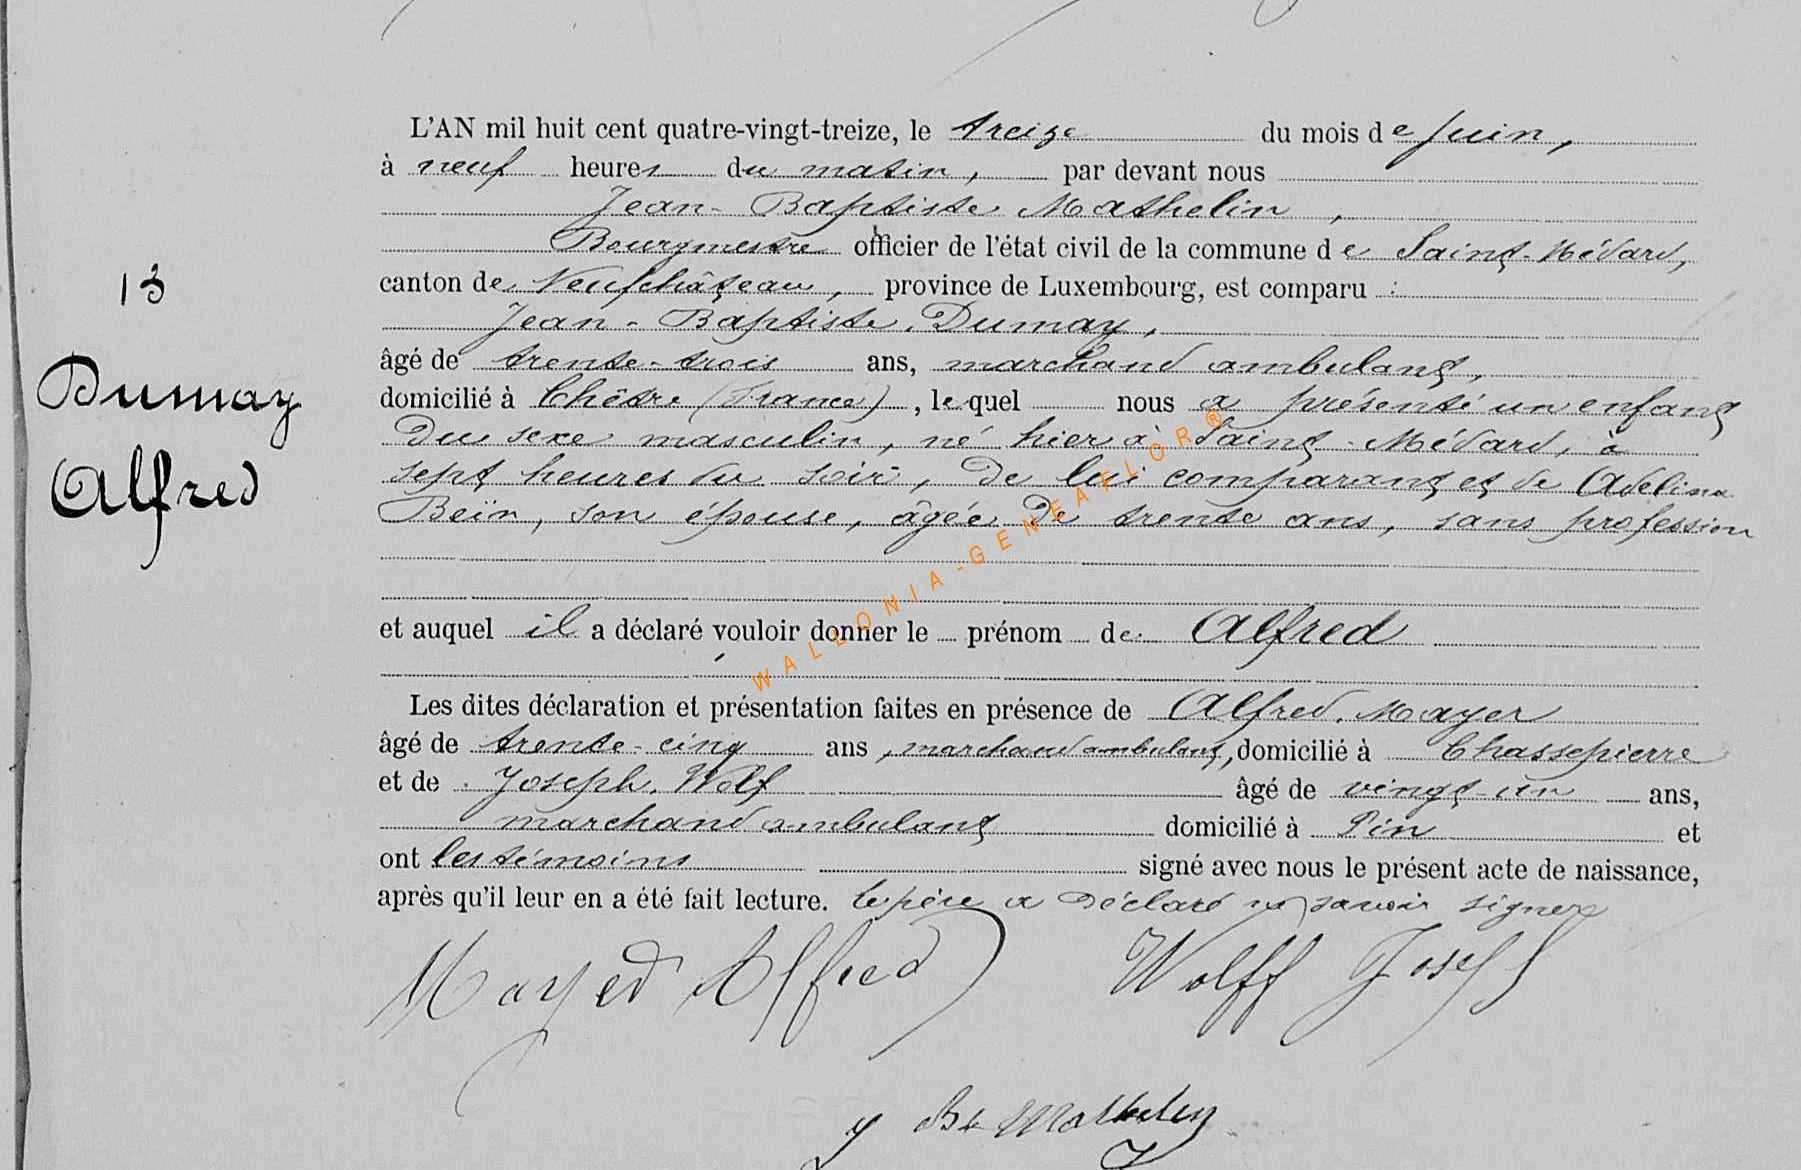 L'AN mil huit cent quatre-vingt-treize, le treize du mois de Juin,
à neuf heures du matin, par devant nous
Jean-Baptiste Mathelin,
Bourgmestre officier de l'état civil de la commune de Saint-Médard,
13
canton de Neufchâteau, province de Luxembourg, est comparu :
Jean-Baptiste Dumay,
Dumay
Alfred
âgé de trente-trois ans, marchand ambulant,
domicilié à Chêtre (France), lequel nous a présenté un enfant
du sexe masculin, né hier à Saint-Médard, à
sept heures du soir, de lui comparant et de Adelina
Bein, son épouse, âgée de trente ans, sans profession
et auquel il a déclaré vouloir donner le prénom de Alfred
Les dites déclaration et présentation faites en présence de Alfred Mayer
âgé de trente-cinq ans, marchand ambulant, domicilié à Chassepierre
et de Joseph Wolf âgé de vingt-un ans,
marchand ambulant domicilié à Pin et
ont les témoins signé avec nous le présent acte de naissance,
après qu'il leur en a été fait lecture. le père a déclaré ne savoir signer
Mayer Alfred Wolff Joseph
J Bte Mathelin
WALLONIA-GENEAFLOR®